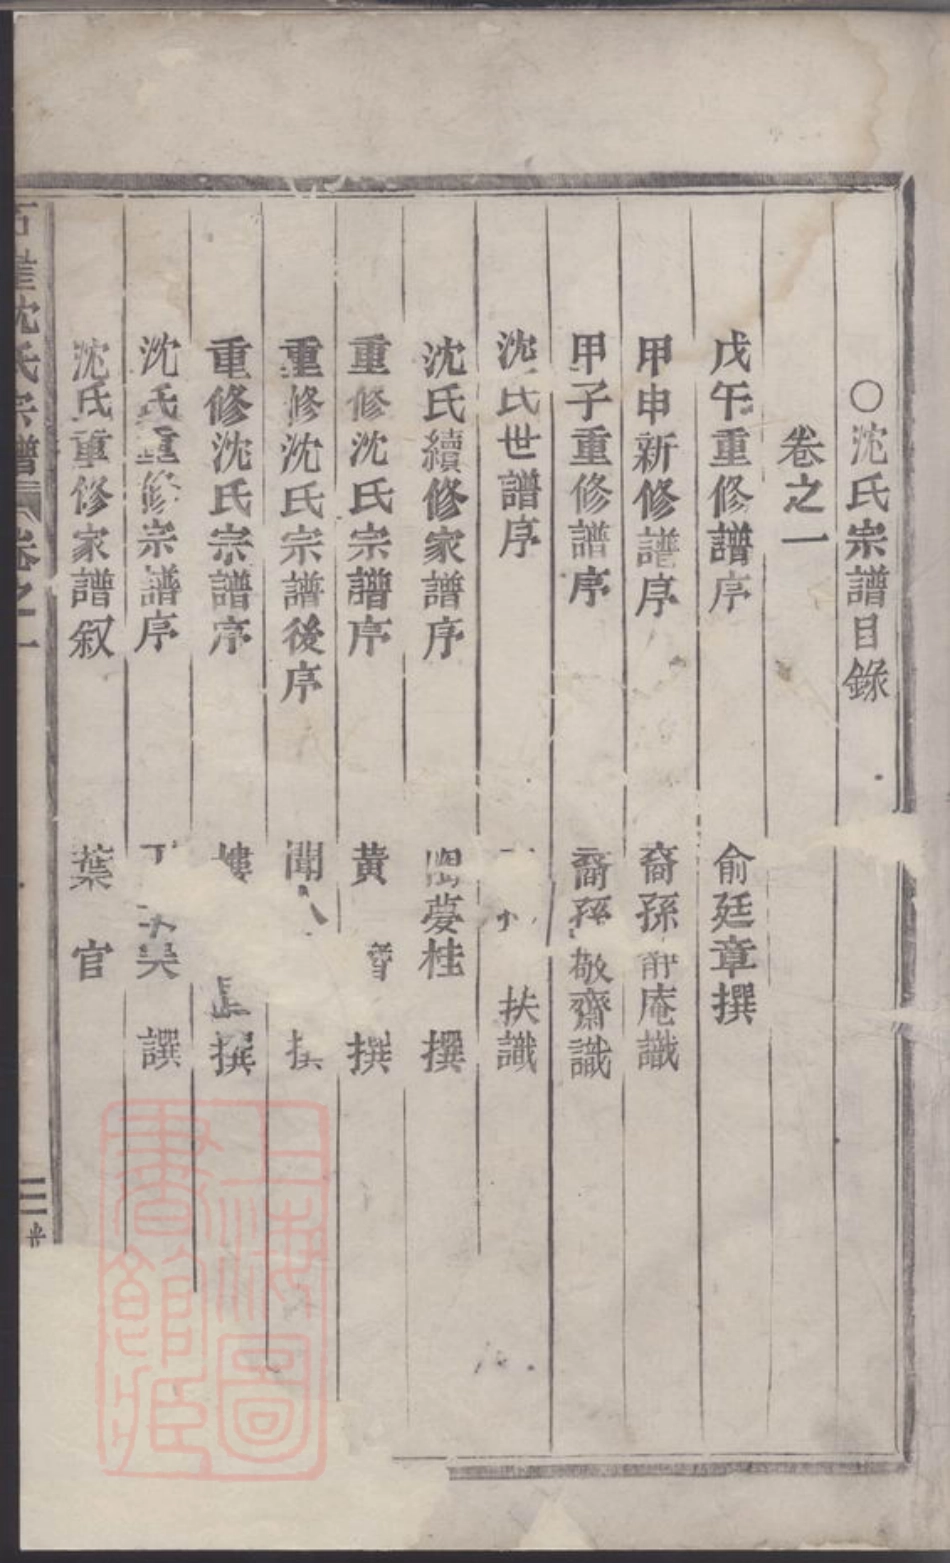 ○沈氏宗譜目錄
卷之一
戊午重修譜序 俞廷章撰
甲申新修譜序 裔孫 庵識
甲子重修譜序 裔孫敬齋識
沈氏世譜序 扶識
沈氏續修家譜序 夢桂 撰
重修沈氏宗譜序 黄 撰
重修沈氏宗譜後序 聞 撰
重修沈氏宗譜序 撰
沈氏重修宗譜序 譔
沈氏重修家譜叙 葉 官
沈氏宗譜 卷之一
上海圖書館藏